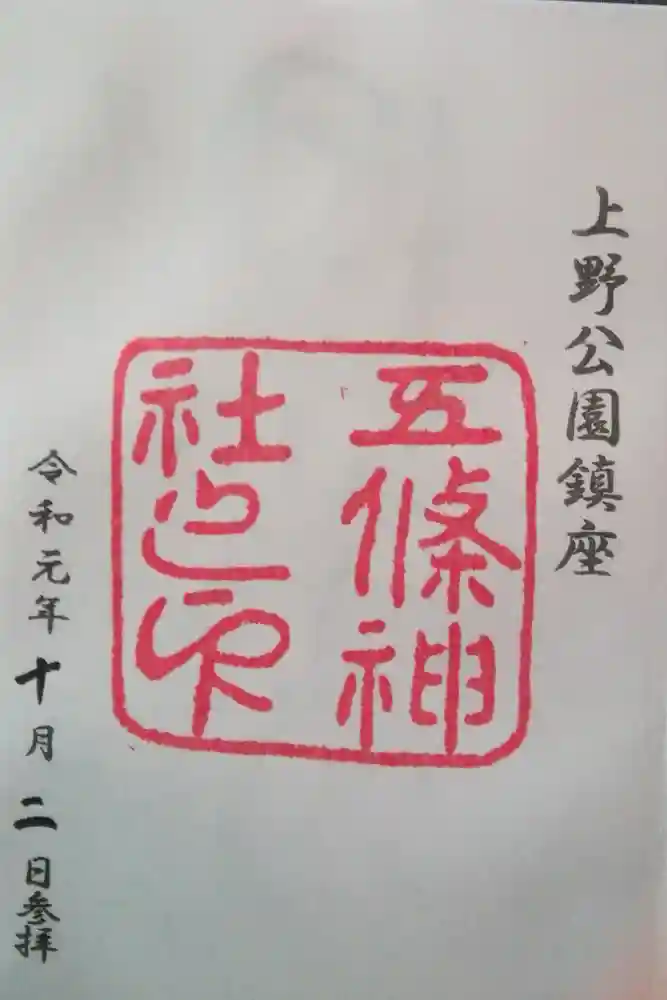 上野公園鎮座
五條神
社之印
令和元年十月二日参拝